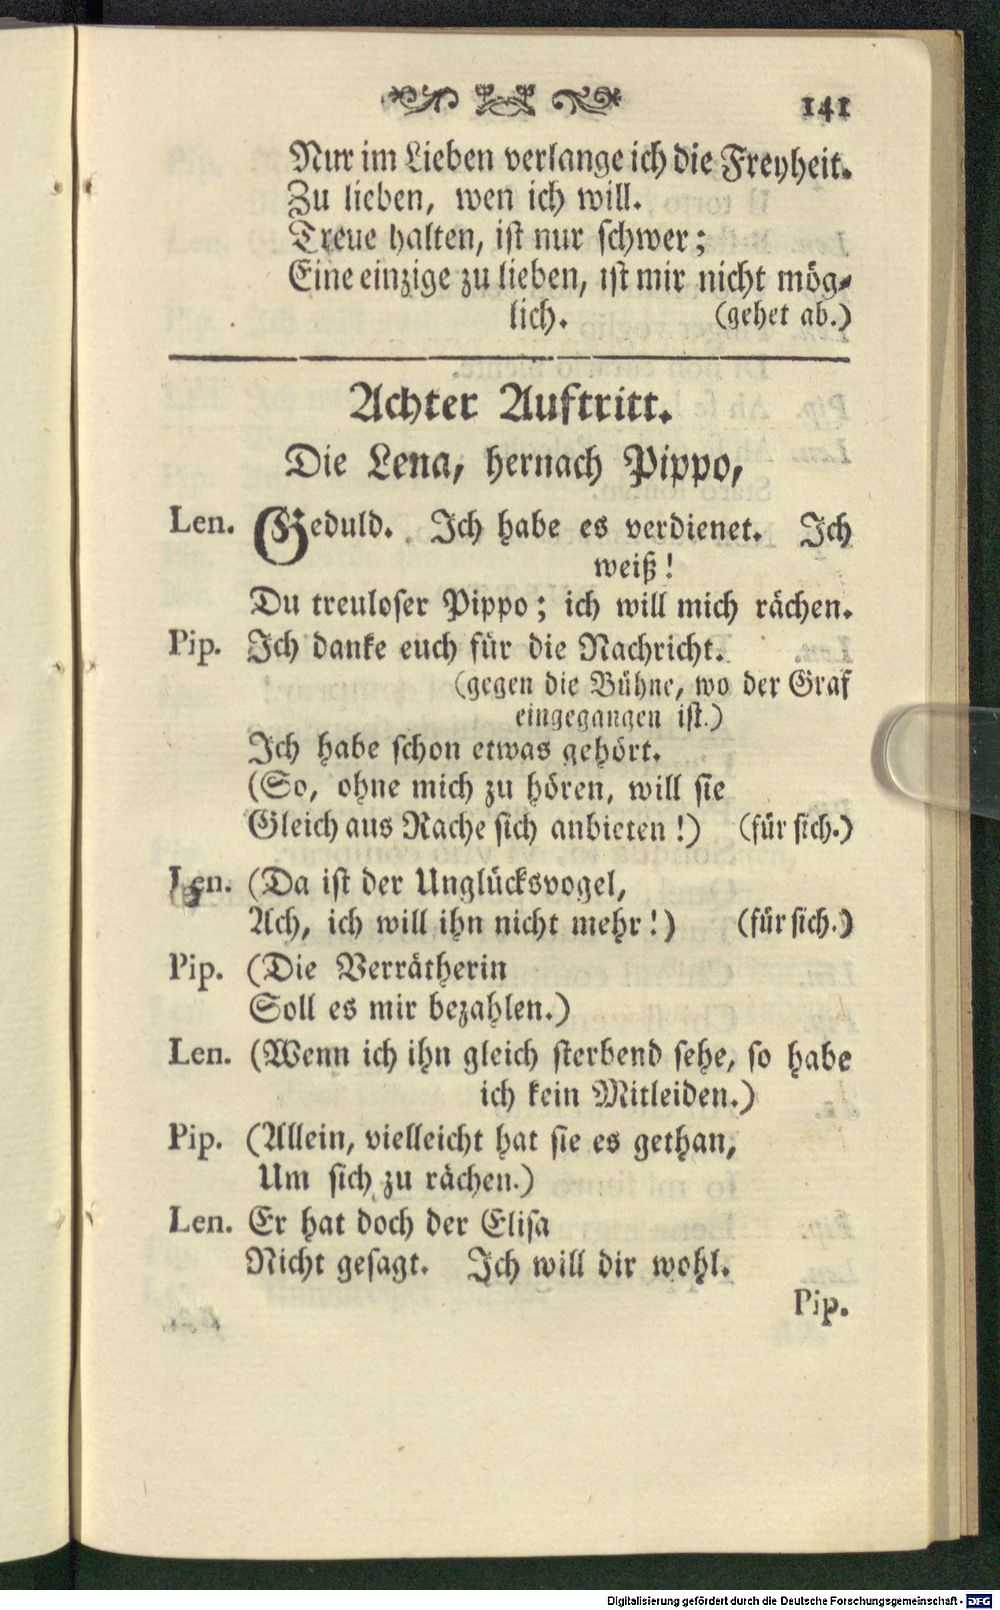 141
Nur im Lieben verlange ich die Freyheit.
Zu lieben, wen ich will.
Treue halten, ist nur schwer;
Eine einzige zu lieben, ist mir nicht mög-
lich. (gehet ab.)
Achter Auftritt.
Die Lena, hernach Pippo,
Len. Geduld. Ich habe es verdienet. Ich
weiß!
Du treuloser Pippo; ich will mich rächen.
Pip. Ich danke euch für die Nachricht.
(gegen die Bühne, wo der Graf
eingegangen ist.)
Ich habe schon etwas gehört.
(So, ohne mich zu hören, will sie
Gleich aus Rache sich anbieten!) (für sich.)
Len. (Da ist der Unglücksvogel,
Ach, ich will ihn nicht mehr!) (für sich.)
Pip. (Die Verrätherin
Soll es mir bezahlen.)
Len. (Wenn ich ihn gleich sterbend sehe, so habe
ich kein Mitleiden.)
Pip. (Allein, vielleicht hat sie es gethan,
Um sich zu rächen.)
Len. Er hat doch der Elisa
Nicht gesagt. Ich will dir wohl.
Pip.
Digitalisierung gefördert durch die Deutsche Forschungsgemeinschaft - DFG